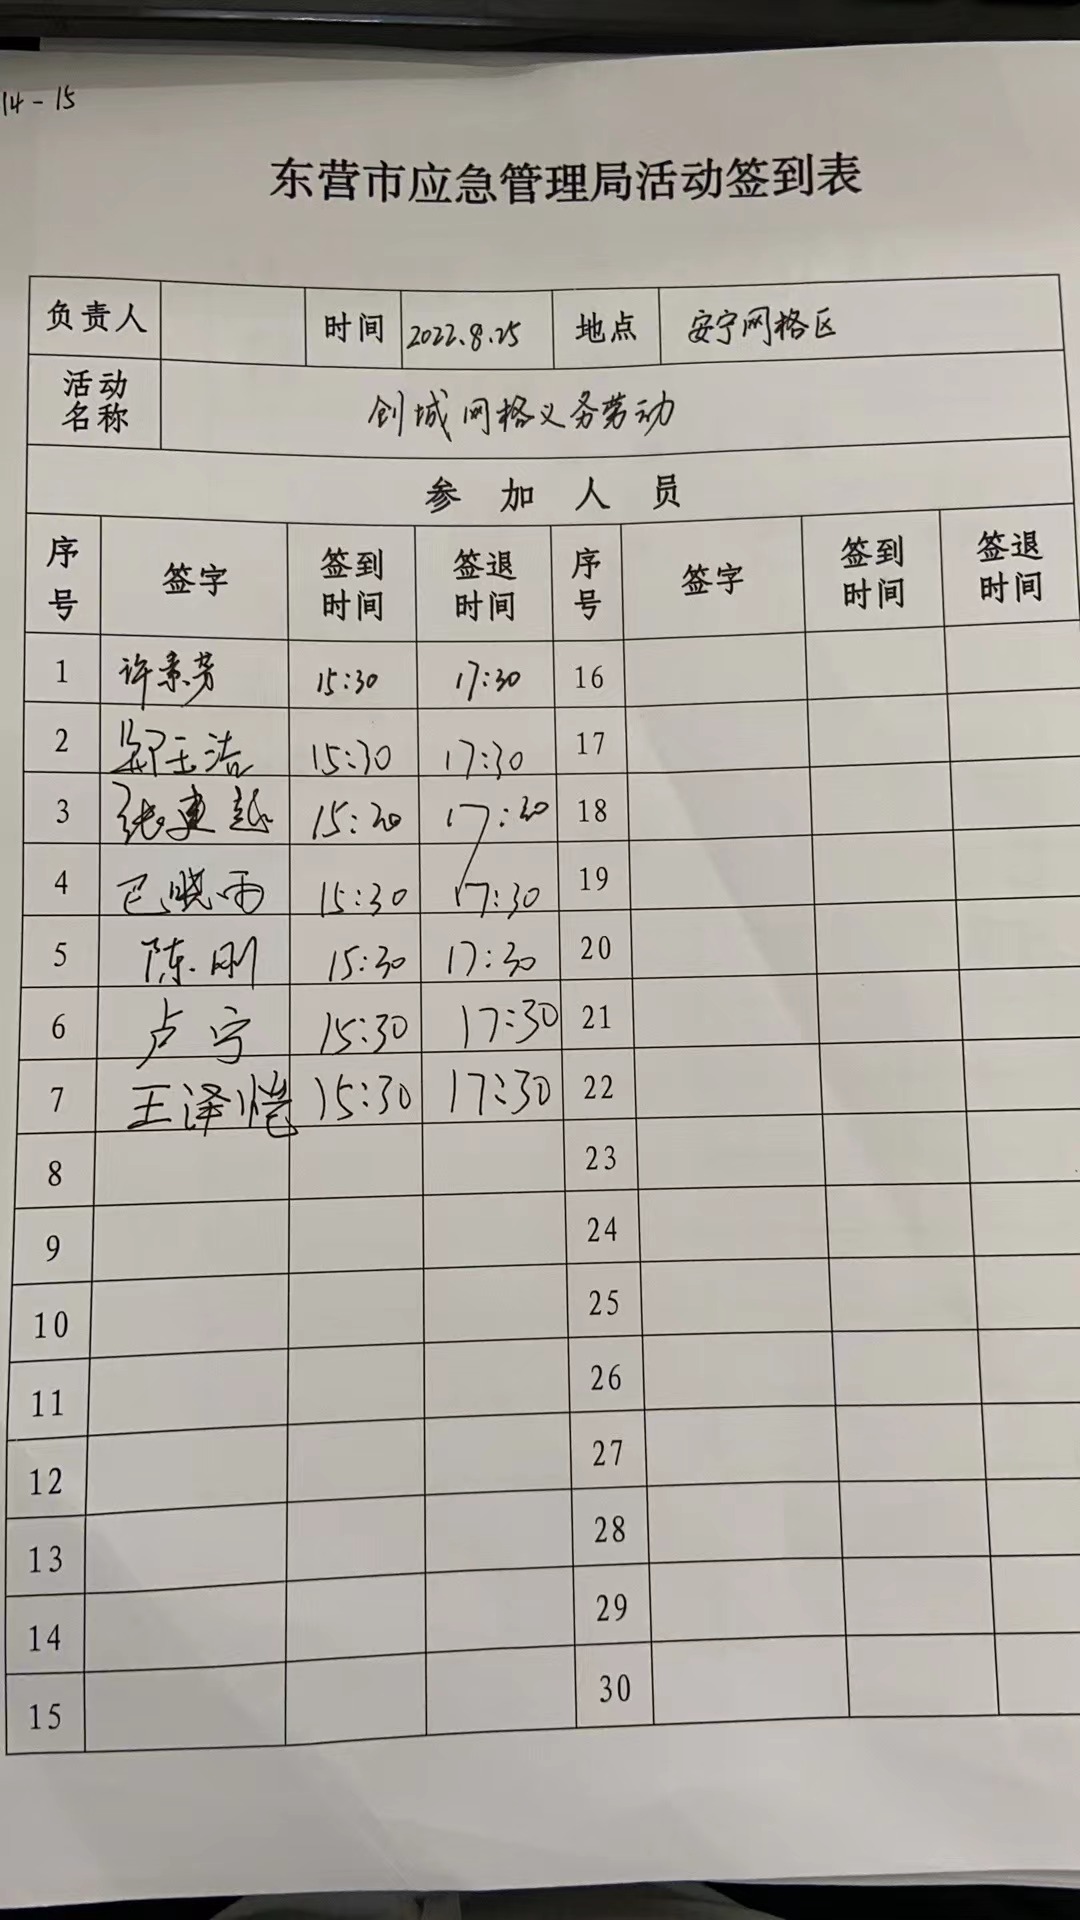 14-15
东营市应急管理局活动签到表
负责人 时间 2022.8.25 地点 安宁网格区
活动名称 创城网格义务劳动
参加人员
序号 签字 签到时间 签退时间 序号 签字 签到时间 签退时间
1 许景芳 15:30 17:30 16
2 郭玉洁 15:30 17:30 17
3 张建越 15:30 17:30 18
4 巴晓雨 15:30 17:30 19
5 陈刚 15:30 17:30 20
6 卢宁 15:30 17:30 21
7 王泽恺 15:30 17:30 22
8 23
9 24
10 25
11 26
12 27
13 28
14 29
15 30